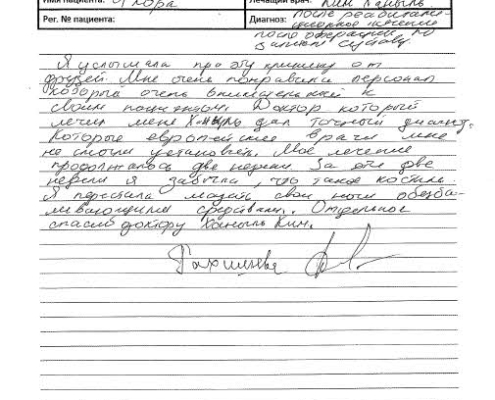 Имя пациента: Флора Лечащий врач: Ким Ханыль
Рег. № пациента: Диагноз: после реабилита-
ционное лечение
после операции по
замене сустава.
Я услышала про эту клинику от
друзей. Мне очень понравился персонал
который очень внимательный к
своим пациентам. Доктор который
лечил меня Ханыль дал точный диагноз.
Которые европейские врачи мне
не смогли установить. Моё лечение
продолжалось две недели. За эти две
недели я забыла, что такое костыль.
Я перестала мазать свои ноги обезба-
ливающими средствами. Отдельное
спасибо доктору Ханыль Ким.